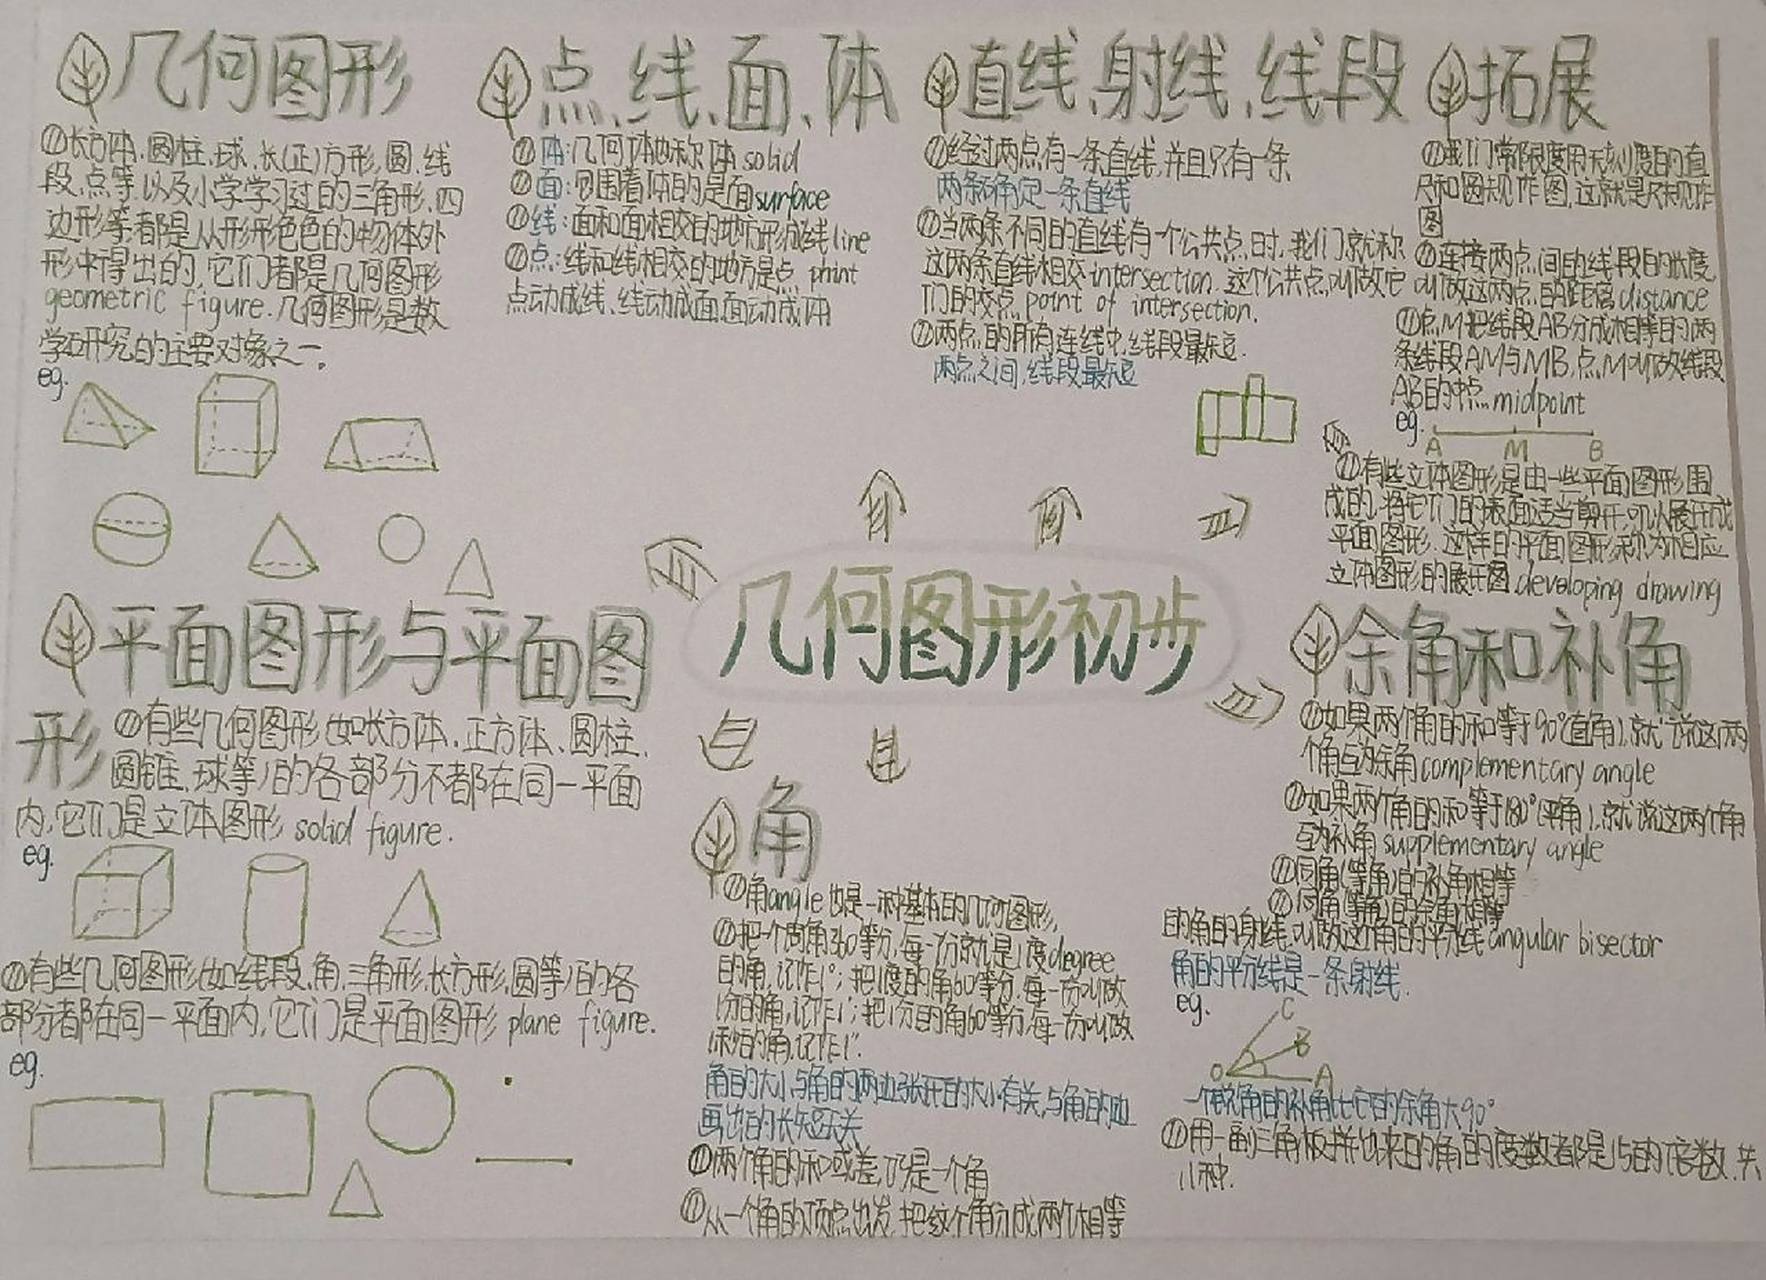 几何图形
长方体、圆柱、球、长(正)方形、圆、线
段、点等,以及小学学习过的三角形、四
边形等,都是从形形色色的物体外
形中得出的,它们都是几何图形
geometric figure.几何图形是数
学研究的主要对象之一。
eg.
点、线、面、体
体:几何体也称体solid
面:包围着体的是面surface
线:面和面相交的地方形成线line
点:线和线相交的地方是点 phint
点动成线、线动成面、面动成体
直线、射线、线段
经过两点有一条直线,并且只有一条
两点确定一条直线
当两条不同的直线有一个公共点时,我们就称
这两条直线相交intersection.这个公共点叫做它
们的交点 point of intersection.
两点的所有连线中,线段最短.
两点之间,线段最短
拓展
我们常限度用无刻度的直
尺和圆规作图,这就是尺规作
图
连接两点间的线段的长度,
叫做这两点的距离distance
点M把线段AB分成相等的两
条线段AM与MB,点M叫做线段
AB的中点midpoint
eg.
A M B
有些立体图形是由一些平面图形围
成的,将它们的表面适当剪开,可以展开成
平面图形.这样的平面图形称为相应
立体图形的展开图developing drawing
几何图形初步
平面图形与平面图
形
有些几何图形(如长方体、正方体、圆柱、
圆锥、球等)的各部分不都在同一平面
内,它们是立体图形 solid figure.
eg.
有些几何图形(如线段、角、三角形、长方形、圆等)的各
部分都在同一平面内,它们是平面图形 plane figure.
eg.
角
角angle也是一种基本的几何图形,
把一个周角360等分,每一份就是1度degree
的角,记作1°;把1度的角60等分,每一份叫做
1分的角,记作1′;把1分的角60等分,每一份叫做
1秒的角,记作1″.
角的大小与角的两边张开的大小有关,与角的边
画出的长短无关
两个角的和或差,仍是一个角
从一个角的顶点出发,把这个角分成两个相等
余角和补角
如果两个角的和等于90°(直角),就说这两
个角互为余角complementary angle
如果两个角的和等于180°(平角),就说这两个角
互为补角supplementary angle
同角(等角)的补角相等
同角(等角)的余角相等
的角的射线,叫做这个角的平分线angular bisector
角的平分线是一条射线.
eg.
C
B
O A
一个锐角的补角比它的余角大90°
用一副三角板拼出来的角的度数都是15的倍数,共
11种.